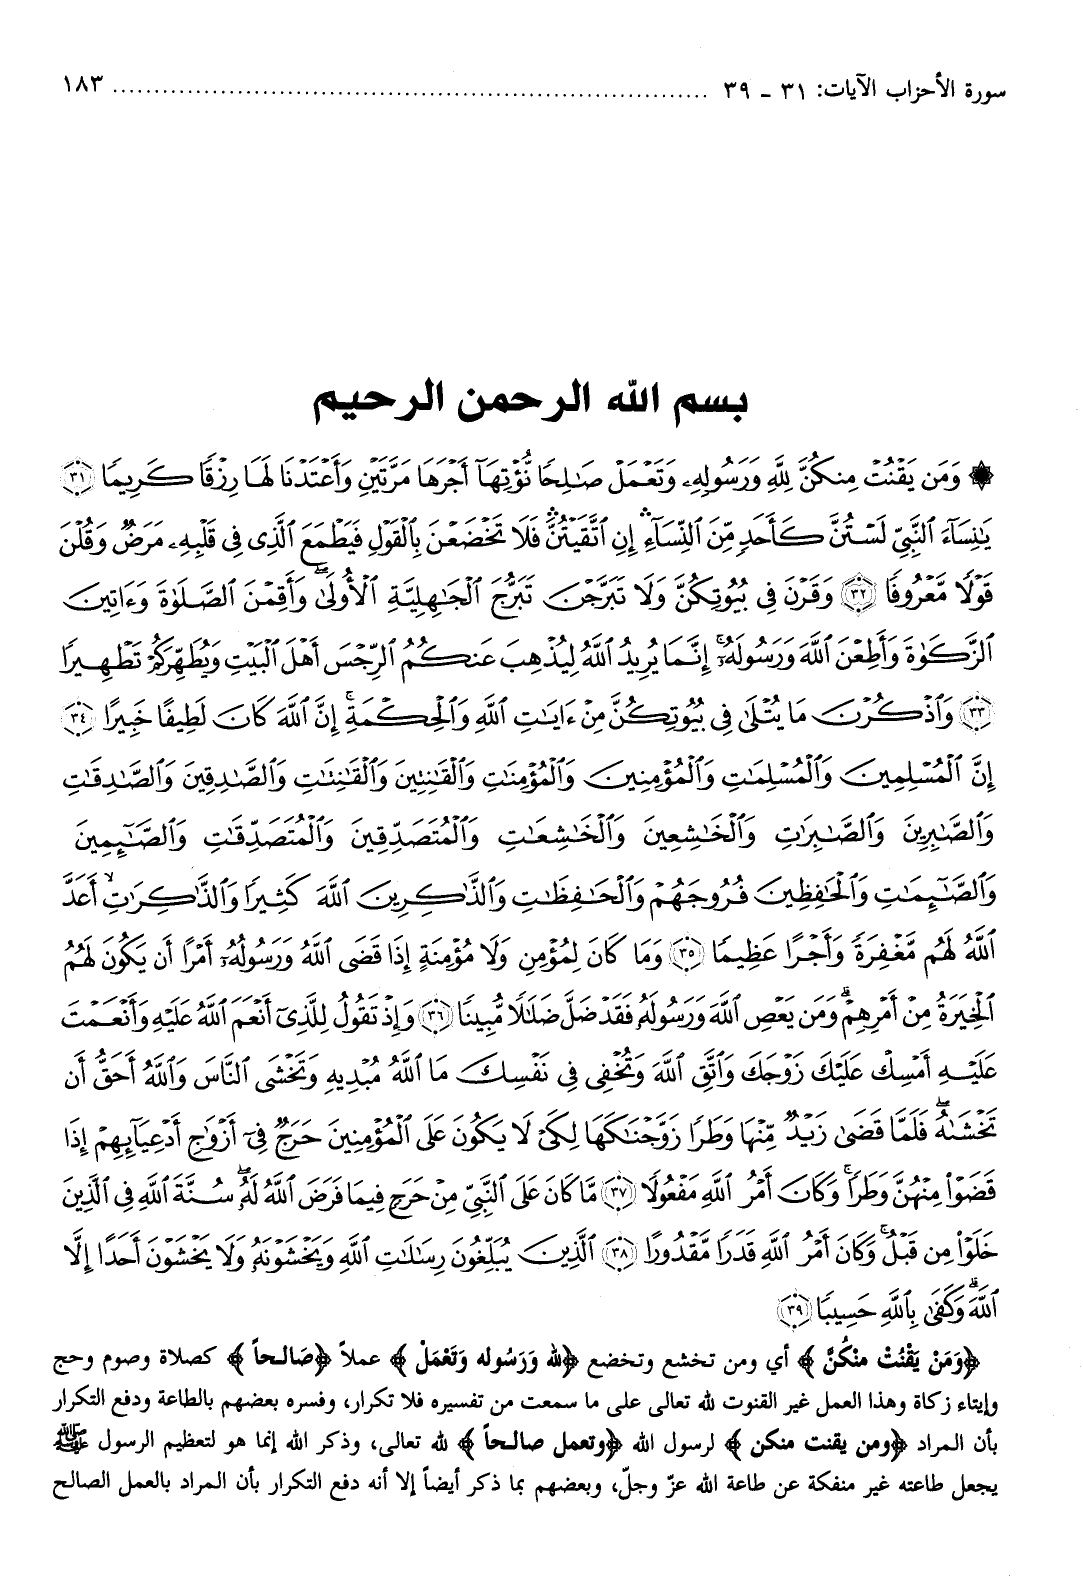 سورة الأحزاب الآيات: ٣١ ـ ٣٩ ........................................................................ ١٨٣
بسم الله الرحمن الرحيم
۞ وَمَن يَقْنُتْ مِنكُنَّ لِلَّهِ وَرَسُولِهِۦ وَتَعْمَلْ صَٰلِحًا نُّؤْتِهَآ أَجْرَهَا مَرَّتَيْنِ وَأَعْتَدْنَا لَهَا رِزْقًا كَرِيمًا ﴿٣١﴾
يَٰنِسَآءَ ٱلنَّبِىِّ لَسْتُنَّ كَأَحَدٍ مِّنَ ٱلنِّسَآءِ ۚ إِنِ ٱتَّقَيْتُنَّ فَلَا تَخْضَعْنَ بِٱلْقَوْلِ فَيَطْمَعَ ٱلَّذِى فِى قَلْبِهِۦ مَرَضٌ وَقُلْنَ
قَوْلًا مَّعْرُوفًا ﴿٣٢﴾ وَقَرْنَ فِى بُيُوتِكُنَّ وَلَا تَبَرَّجْنَ تَبَرُّجَ ٱلْجَٰهِلِيَّةِ ٱلْأُولَىٰ ۖ وَأَقِمْنَ ٱلصَّلَوٰةَ وَءَاتِينَ
ٱلزَّكَوٰةَ وَأَطِعْنَ ٱللَّهَ وَرَسُولَهُۥٓ ۚ إِنَّمَا يُرِيدُ ٱللَّهُ لِيُذْهِبَ عَنكُمُ ٱلرِّجْسَ أَهْلَ ٱلْبَيْتِ وَيُطَهِّرَكُمْ تَطْهِيرًا
﴿٣٣﴾ وَٱذْكُرْنَ مَا يُتْلَىٰ فِى بُيُوتِكُنَّ مِنْ ءَايَٰتِ ٱللَّهِ وَٱلْحِكْمَةِ ۚ إِنَّ ٱللَّهَ كَانَ لَطِيفًا خَبِيرًا ﴿٣٤﴾
إِنَّ ٱلْمُسْلِمِينَ وَٱلْمُسْلِمَٰتِ وَٱلْمُؤْمِنِينَ وَٱلْمُؤْمِنَٰتِ وَٱلْقَٰنِتِينَ وَٱلْقَٰنِتَٰتِ وَٱلصَّٰدِقِينَ وَٱلصَّٰدِقَٰتِ
وَٱلصَّٰبِرِينَ وَٱلصَّٰبِرَٰتِ وَٱلْخَٰشِعِينَ وَٱلْخَٰشِعَٰتِ وَٱلْمُتَصَدِّقِينَ وَٱلْمُتَصَدِّقَٰتِ وَٱلصَّٰٓئِمِينَ
وَٱلصَّٰٓئِمَٰتِ وَٱلْحَٰفِظِينَ فُرُوجَهُمْ وَٱلْحَٰفِظَٰتِ وَٱلذَّٰكِرِينَ ٱللَّهَ كَثِيرًا وَٱلذَّٰكِرَٰتِ ۙ أَعَدَّ
ٱللَّهُ لَهُم مَّغْفِرَةً وَأَجْرًا عَظِيمًا ﴿٣٥﴾ وَمَا كَانَ لِمُؤْمِنٍ وَلَا مُؤْمِنَةٍ إِذَا قَضَى ٱللَّهُ وَرَسُولُهُۥٓ أَمْرًا أَن يَكُونَ لَهُمُ
ٱلْخِيَرَةُ مِنْ أَمْرِهِمْ ۗ وَمَن يَعْصِ ٱللَّهَ وَرَسُولَهُۥ فَقَدْ ضَلَّ ضَلَٰلًا مُّبِينًا ﴿٣٦﴾ وَإِذْ تَقُولُ لِلَّذِىٓ أَنْعَمَ ٱللَّهُ عَلَيْهِ وَأَنْعَمْتَ
عَلَيْهِ أَمْسِكْ عَلَيْكَ زَوْجَكَ وَٱتَّقِ ٱللَّهَ وَتُخْفِى فِى نَفْسِكَ مَا ٱللَّهُ مُبْدِيهِ وَتَخْشَى ٱلنَّاسَ وَٱللَّهُ أَحَقُّ أَن
تَخْشَىٰهُ ۖ فَلَمَّا قَضَىٰ زَيْدٌ مِّنْهَا وَطَرًا زَوَّجْنَٰكَهَا لِكَىْ لَا يَكُونَ عَلَى ٱلْمُؤْمِنِينَ حَرَجٌ فِىٓ أَزْوَٰجِ أَدْعِيَآئِهِمْ إِذَا
قَضَوْا۟ مِنْهُنَّ وَطَرًا ۚ وَكَانَ أَمْرُ ٱللَّهِ مَفْعُولًا ﴿٣٧﴾ مَّا كَانَ عَلَى ٱلنَّبِىِّ مِنْ حَرَجٍ فِيمَا فَرَضَ ٱللَّهُ لَهُۥ ۖ سُنَّةَ ٱللَّهِ فِى ٱلَّذِينَ
خَلَوْا۟ مِن قَبْلُ ۚ وَكَانَ أَمْرُ ٱللَّهِ قَدَرًا مَّقْدُورًا ﴿٣٨﴾ ٱلَّذِينَ يُبَلِّغُونَ رِسَٰلَٰتِ ٱللَّهِ وَيَخْشَوْنَهُۥ وَلَا يَخْشَوْنَ أَحَدًا إِلَّا
ٱللَّهَ ۗ وَكَفَىٰ بِٱللَّهِ حَسِيبًا ﴿٣٩﴾
﴿وَمَنْ يَقْنُتْ مِنْكُنَّ﴾ أي ومن تخشع وتخضع ﴿لله وَرَسُوله وَتَعْمَلْ﴾ عملاً ﴿صَالحاً﴾ كصلاة وصوم وحج
وإيتاء زكاة وهذا العمل غير القنوت لله تعالى على ما سمعت من تفسيره فلا تكرار، وفسره بعضهم بالطاعة ودفع التكرار
بأن المراد ﴿ومن يقنت منكن﴾ لرسول الله ﴿وتعمل صالحاً﴾ لله تعالى، وذكر الله إنما هو لتعظيم الرسول ﷺ
يجعل طاعته غير منفكة عن طاعة الله عزّ وجلّ، وبعضهم بما ذكر أيضاً إلا أنه دفع التكرار بأن المراد بالعمل الصالح